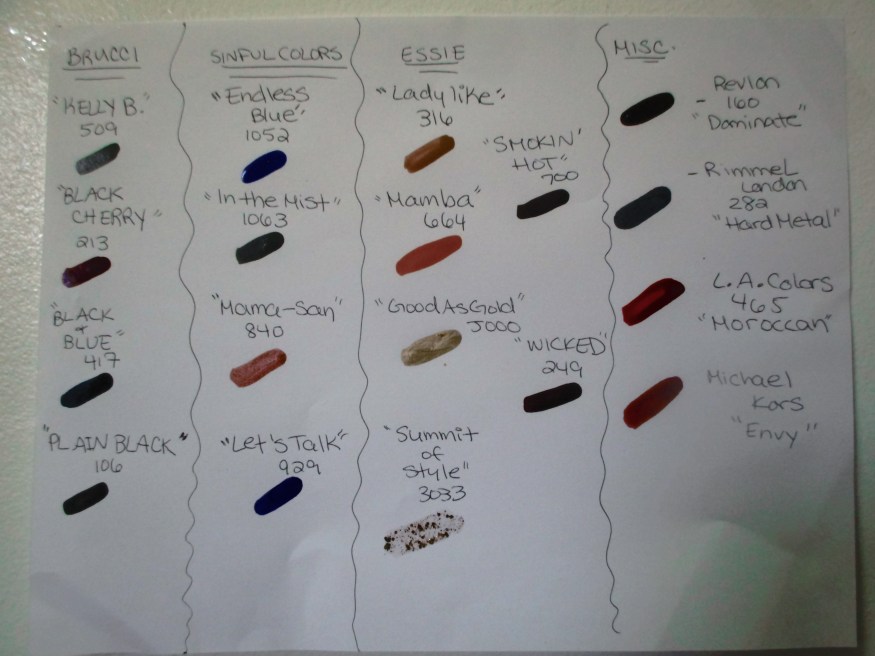 BRUCCI
"KELLY B."
509
"BLACK
CHERRY"
213
"BLACK
+
BLUE"
417
"PLAIN BLACK"
106
SINFUL COLORS
"Endless
Blue"
1052
"In the Mist"
1063
"Mama-San"
840
"Let's Talk"
929
ESSIE
"Ladylike"
316
"Mamba"
664
"Good As Gold"
3000
"Summit
of
Style"
3033
"SMOKIN'
HOT"
700
"WICKED"
249
MISC.
Revlon
- 160
"Dominate"
- Rimmel
London
282
"Hard Metal"
L.A. Colors
465
"Moroccan"
Michael
Kors
"Envy"